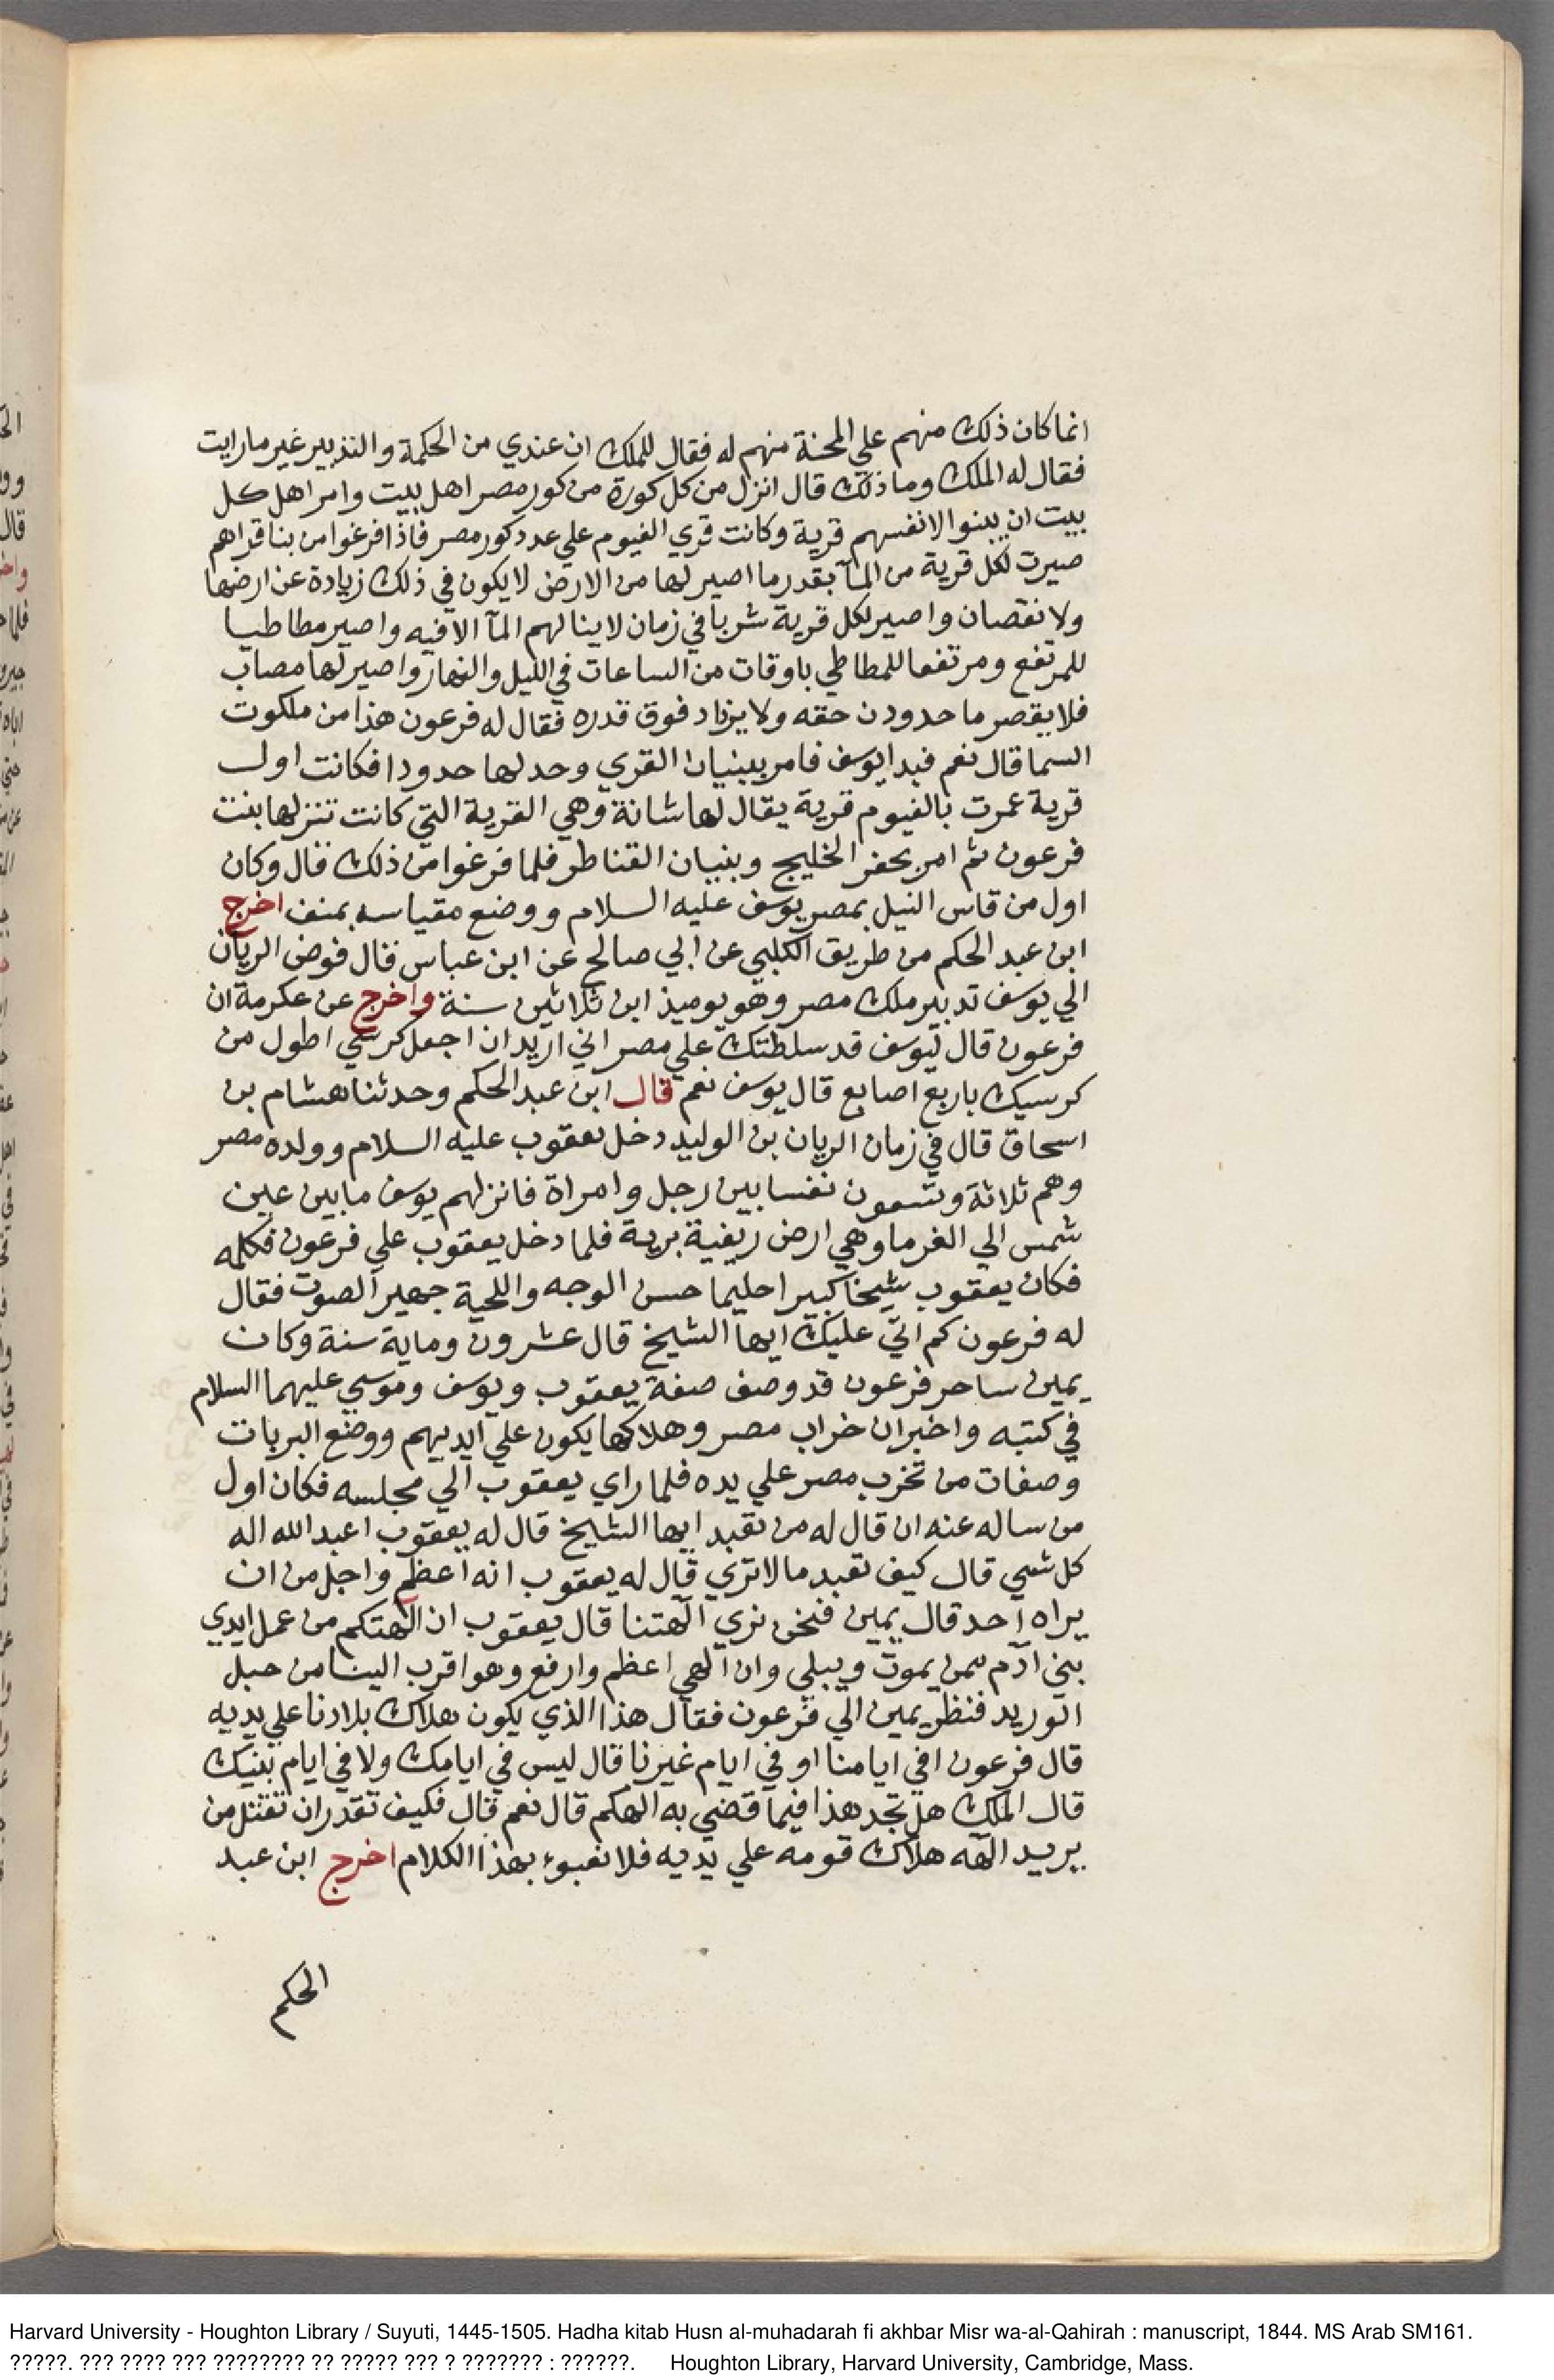 انما كان ذلك منهم علي المحنة منهم له فقال للملك ان عندي من الحكمة والتدبير غير ما رايت
فقال له الملك وما ذلك قال انزل من كل كورة من كور مصر اهل بيت وامر اهل كل
بيت ان يبنوا لانفسهم قرية وكانت قري الفيوم علي عدد كور مصر فاذا فرغوا من بنا قراهم
صيرت لكل قرية من المآ بقدر ما اصير لها من الارض لا يكون في ذلك زيادة عن ارضها
ولا نقصان واصير لكل قرية شربا في زمان لا ينالهم المآ الا فيه واصير مطاطيا
للمرتفع ومرتفعا للمطاطي باوقات من الساعات في الليل والنهار واصير لها مصاب
فلا يقصر ما حدودن حقه ولا يزاد فوق قدره فقال له فرعون هذا من ملكوت
السما قال نعم فبدا يوسف فامر ببنيان القري وحد لها حدودا فكانت اول
قرية عمرت بالفيوم قرية يقال لها شانة وهي القرية التي كانت تنزلها بنت
فرعون ثم امر بحفر الخليج وبنيان القناطر فلما فرغوا من ذلك قال وكان
اول من قاس النيل بمصر يوسف عليه السلام ووضع مقياسه بمنف اخرج
ابن عبد الحكم من طريق الكلبي عن ابي صالح عن ابن عباس قال فوض الريان
الي يوسف تدبير ملك مصر وهو يوميذ ابن ثلاثين سنة واخرج عن عكرمة ان
فرعون قال ليوسف قد سلطتك علي مصر اني اريد ان اجعل كرسي اطول من
كرسيك باربع اصابع قال يوسف نعم قال ابن عبد الحكم وحدثنا هشام بن
اسحاق قال في زمان الريان بن الوليد دخل يعقوب عليه السلام وولده مصر
وهم ثلاثة وتسعون نفسا بين رجل وامراة فانزلهم يوسف ما بين عين
شمس الي الفرما وهي ارض ريفية برية فلما دخل يعقوب علي فرعون فكلمه
فكان يعقوب شيخا كبيرا حليما حسن الوجه واللحية جهير الصوت فقال
له فرعون كم اتي عليك ايها الشيخ قال عشرون وماية سنة وكان
يمين ساحر فرعون قد وصف صفة يعقوب ويوسف وموسي عليهما السلام
في كتبه واخبر ان خراب مصر وهلاكها يكون علي ايديهم ووضع البربات
وصفات من تخرب مصر علي يده فلما راي يعقوب الي مجلسه فكان اول
من ساله عنه ان قال له من تعبد ايها الشيخ قال له يعقوب اعبد الله اله
كل شي قال كيف تعبد ما لا تري قال له يعقوب انه اعظم واجل من ان
يراه احد قال يمين فنحن نري آلهتنا قال يعقوب ان الهتكم من عمل ايدي
بني آدم ممن يموت ويبلي وان آلهي اعظم وارفع وهو اقرب الينا من حبل
الوريد فنظر يمين الي فرعون فقال هذا الذي يكون هلاك بلادنا علي يديه
قال فرعون افي ايامنا او في ايام غيرنا قال ليس في ايامك ولا في ايام بنيك
قال الملك هل تجد هذا فيما قضي به الهكم قال نعم قال فكيف تقدر ان تقتل من
يريد الهه هلاك قومه علي يديه فلا نعبوء بهذا الكلام اخرج ابن عبد
الحكم
Harvard University - Houghton Library / Suyuti, 1445-1505. Hadha kitab Husn al-muhadarah fi akhbar Misr wa-al-Qahirah : manuscript, 1844. MS Arab SM161.
?????. ??? ???? ??? ???????? ?? ????? ??? ? ??????? : ??????. Houghton Library, Harvard University, Cambridge, Mass.